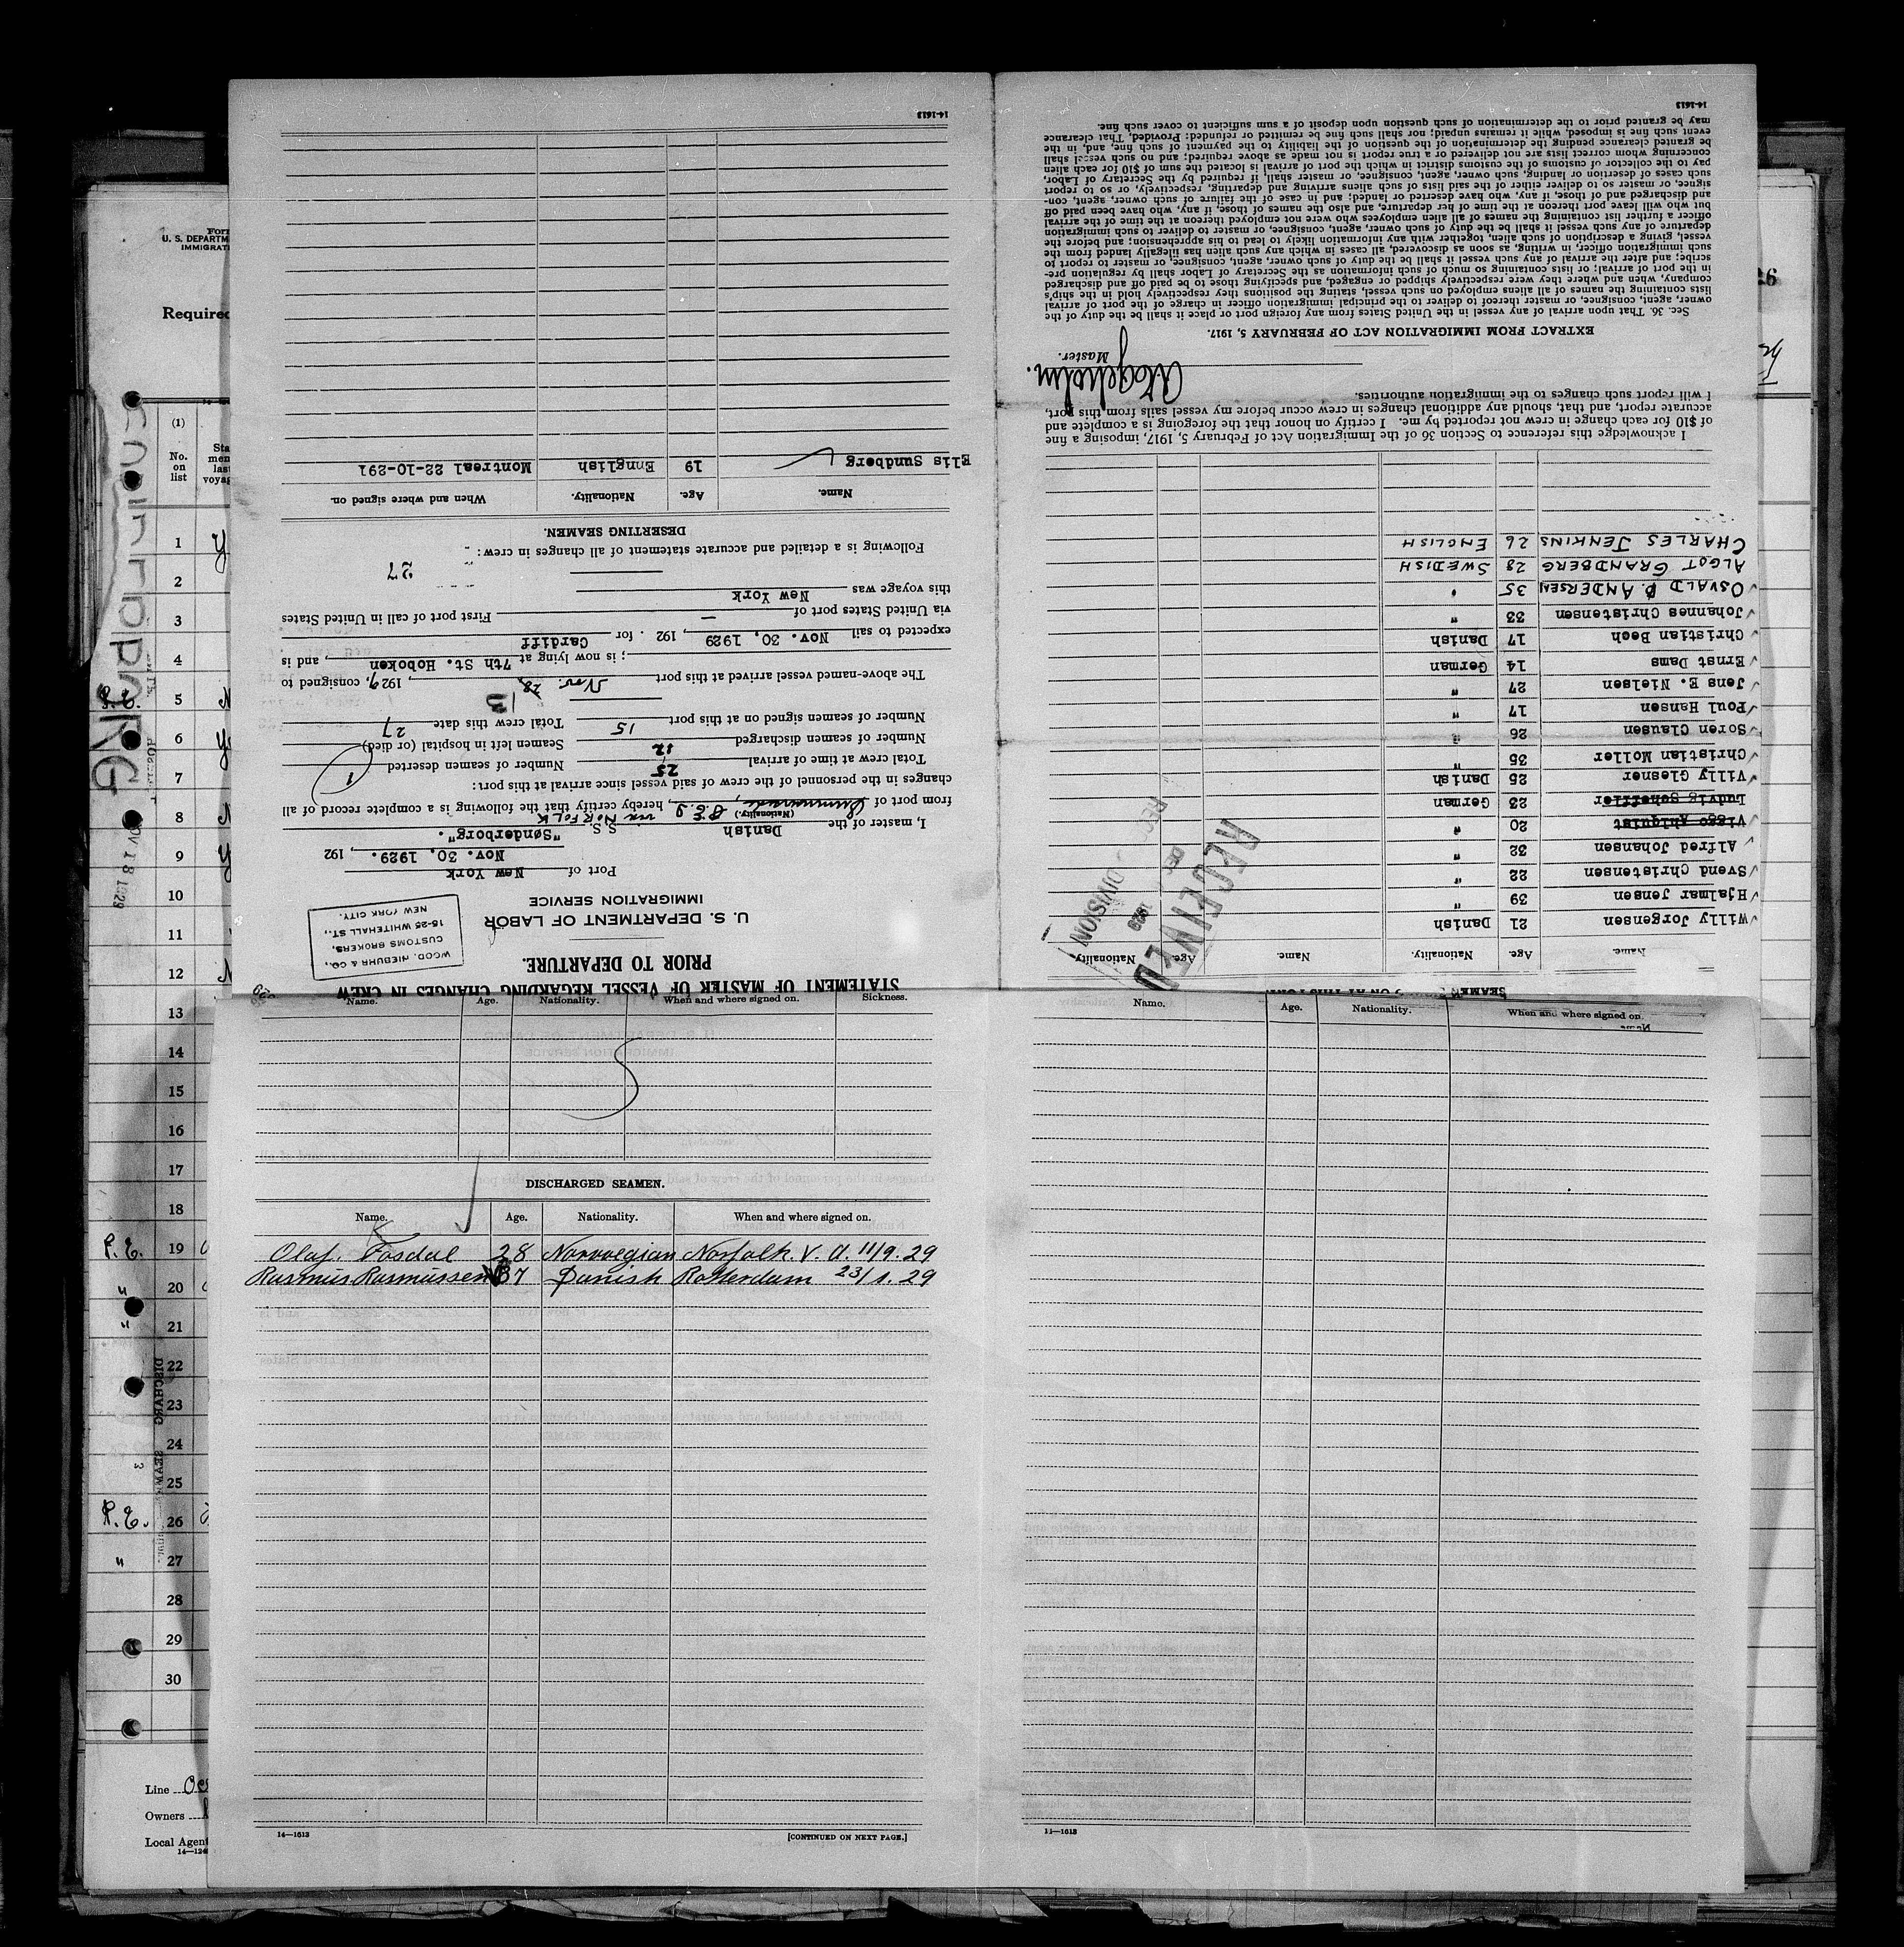 STATEMENT OF MASTER OF VESSEL REGARDING CHANGES IN CREW
PRIOR TO DEPARTURE.
U. S. DEPARTMENT OF LABOR
IMMIGRATION SERVICE
WOOD, NIEBUHR & CO.,
CUSTOMS BROKERS,
15-25 WHITEHALL ST.,
NEW YORK CITY.
Port of New York
Nov. 30, 1929. , 192
I, master of the Danish S S. "Sønderborg".
(Nationality.)
from port of via NORFOLK, hereby certify that the following is a complete record of all
changes in the personnel of the crew of said vessel since arrival at this port:
Total crew at time of arrival 25 Number of seamen deserted 1
Number of seamen discharged 12 Seamen left in hospital (or died)
Number of seamen signed on at this port 15 Total crew this date 27
13
The above-named vessel arrived at this port Nov. 28, 1929, consigned to
; is now lying at 7th St. Hoboken, and is
expected to sail Nov. 30, 1929, 192 . for Cardiff
via United States port of — First port of call in United States
this voyage was New York
27
Following is a detailed and accurate statement of all changes in crew:
DESERTING SEAMEN.
Name. Age. Nationality. When and where signed on.
Elis Sundberg 19 Ennglish Montreal 22-10-291
14-1613
SEAMEN
Name. Age. Nationality. Name. Age. Nationality.
Willy Jorgensen 21 Danish
Hjalmar Jensen 39 "
Svend Christensen 22 "
Alfred Johansen 32 "
Viggo Ahlquist 20 "
Ludvig Scheffler 23 German
Villy Glesner 25 Danish
Christian Moller 35 "
Soren Clausen 26 "
Poul Hansen 17 "
Jens E. Nielsen 27 "
Ernst Dams 14 German
Christian Bech 17 Danish
Johannes Christensen 33 "
OSVALD P. ANDERSEN 35 "
ALGOT GRANDBERG 28 SWEDISH
CHARLES JENKINS 26 ENGLISH
RECEIVED
DEC 1929
DIVISION
I acknowledge this reference to Section 36 of the Immigration Act of February 5, 1917, imposing a fine
of $10 for each change in crew not reported by me. I certify on honor that the foregoing is a complete and
accurate report, and that, should any additional changes in crew occur before my vessel sails from this port,
I will report such changes to the immigration authorities.
Master.
EXTRACT FROM IMMIGRATION ACT OF FEBRUARY 5, 1917.
Sec. 36. That upon arrival of any vessel in the United States from any foreign port or place it shall be the duty of the
owner, agent, consignee, or master thereof to deliver to the principal immigration officer in charge of the port of arrival
lists containing the names of all aliens employed on such vessel, stating the positions they respectively hold in the ship's
company, when and where they were respectively shipped or engaged, and specifying those to be paid off and discharged
in the port of arrival; or lists containing so much of such information as the Secretary of Labor shall by regulation pre-
scribe; and after the arrival of any such vessel it shall be the duty of such owner, agent, consignee, or master to report to
such immigration officer, in writing, as soon as discovered, all cases in which any such alien has illegally landed from the
vessel, giving a description of such alien, together with any information likely to lead to his apprehension; and before the
departure of any such vessel it shall be the duty of such owner, agent, consignee, or master to deliver to such immigration
officer a further list containing the names of all alien employees who were not employed thereon at the time of the arrival
but who will leave port thereon at the time of her departure, and also the names of those, if any, who have been paid off
and discharged and of those, if any, who have deserted or landed; and in case of the failure of such owner, agent, con-
signee, or master so to deliver either of the said lists of such aliens arriving and departing, respectively, or so to report
such cases of desertion or landing, such owner, agent, consignee, or master shall, if required by the Secretary of Labor,
pay to the collector of customs of the customs district in which the port of arrival is located the sum of $10 for each alien
concerning whom correct lists are not delivered or a true report is not made as above required; and no such vessel shall
be granted clearance pending the determination of the question of the liability to the payment of such fine, and, in the
event such fine is imposed, while it remains unpaid; nor shall such fine be remitted or refunded: Provided, That clearance
may be granted prior to the determination of such question upon deposit of a sum sufficient to cover such fine.
14-1613
Name. Age. Nationality. When and where signed on. Sickness.
DISCHARGED SEAMEN.
Name. Age. Nationality. When and where signed on.
Olaf. Fosdal 28 Norwegian Norfolk. V. A. 11/9. 29
Rasmus Rasmussen 37 Danish Rotterdam 23/1. 29
14—1613 [CONTINUED ON NEXT PAGE.]
Name. Age. Nationality. When and where signed on
14—1613
U. S. DEPARTM
IMMIGRAT
Required
(1)
No.
on
list
1
2
3
4
P.E. 5
6
7
8
9
10
11
12
13
14
15
16
17
18
P.E. 19
" 20
" 21
22
23
24
25
P.E. 26
" 27
28
29
30
NOV 18 1929
Line
Owners
Local Agen